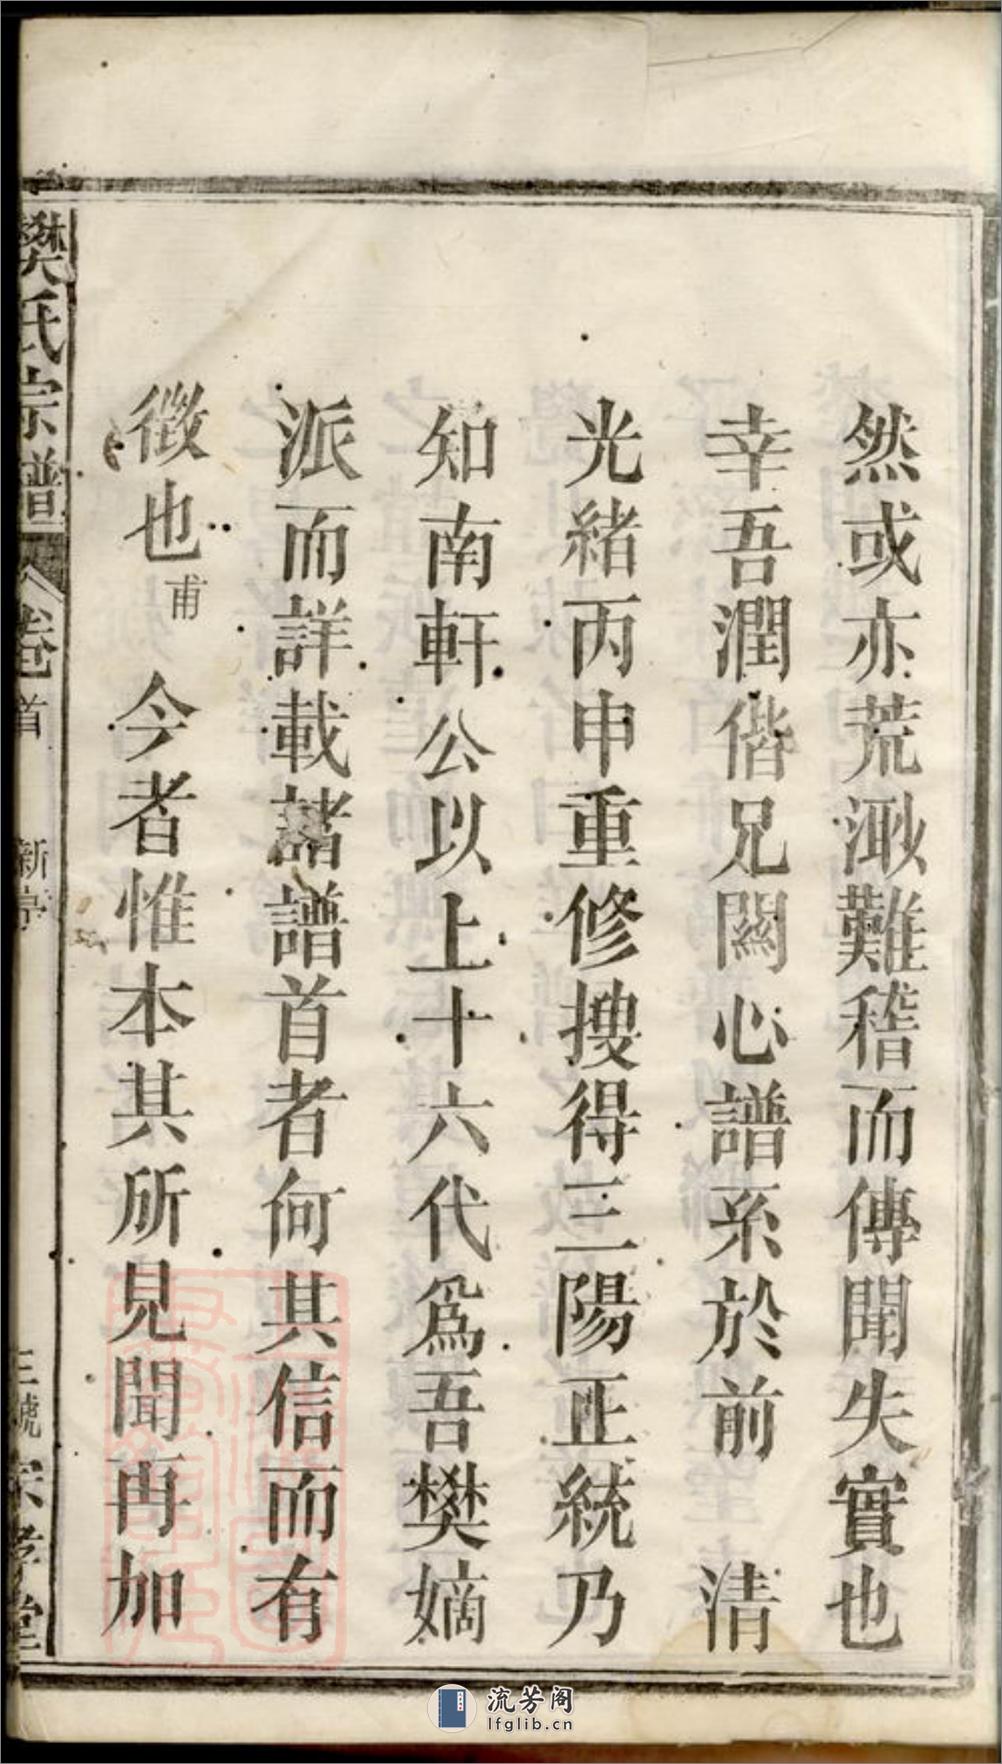 然或亦荒渺難稽而傳聞失實也
幸吾潤偕兄關心譜系於前　清
光緒丙申重修搜得三陽正統乃
知南軒公以上十六代爲吾樊嫡
派而詳載諸譜首者何其信而有
徵也甫　今者惟本其所見聞再加
樊氏宗譜　卷首　新亭　三號　宋孝堂
流芳阁
lfglib.cn